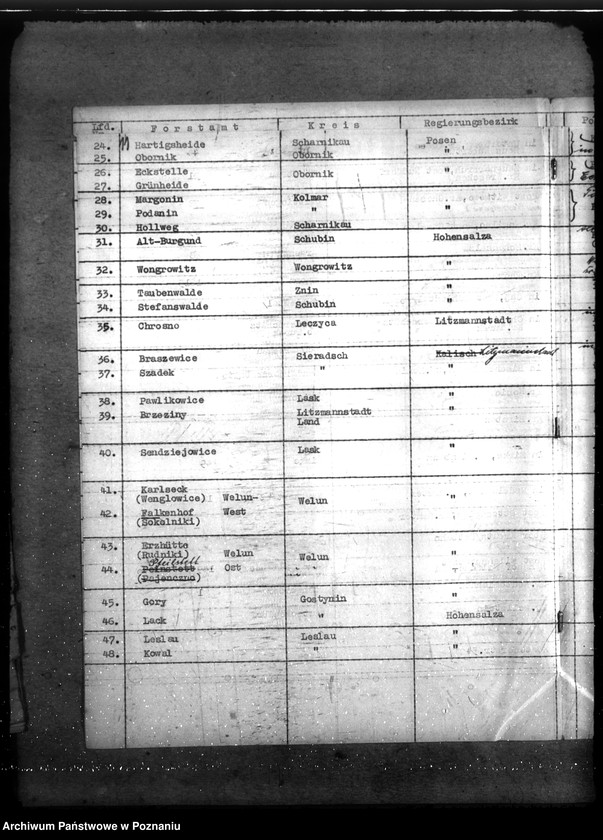 Lfd. Forstamt Kreis Regierungsbezirk
24. Hartigsheide Scharnikau Posen
25. Obornik Obornik "
26. Eckstelle Obornik "
27. Grünheide
28. Margonin Kolmar "
29. Podanin "
30. Hollweg Scharnikau
31. Alt-Burgund Schubin Hohensalza
32. Wongrowitz Wongrowitz "
33. Taubenwalde Znin "
34. Stefanswalde Schubin "
35. Chrosno Leczyca Litzmannstadt
36. Braszewice Sieradsch Kalisch Litzmannstadt
37. Szadek " "
38. Pawlikowice Lask "
39. Brzeziny Litzmannstadt "
Land
40. Sendziejowice Lask "
41. Karlseck
(Wenglowice) Welun- Welun "
42. Falkenhof West
(Sokolniki)
43. Erzhütte
(Rudniki) Welun Welun "
44. Ost
(Pajenczno)
45. Gory Gostynin "
46. Lack " Hohensalza
47. Leslau Leslau "
48. Kowal " "
Archiwum Państwowe w Poznaniu